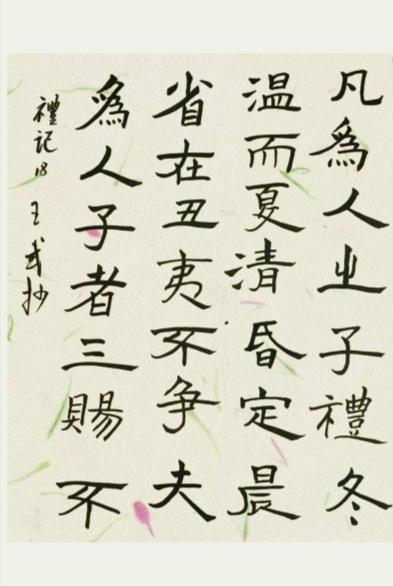 凡爲人之子禮冬
温而夏清昏定晨
省在丑夷不争夫
爲人子者三賜不
禮记18 王 抄